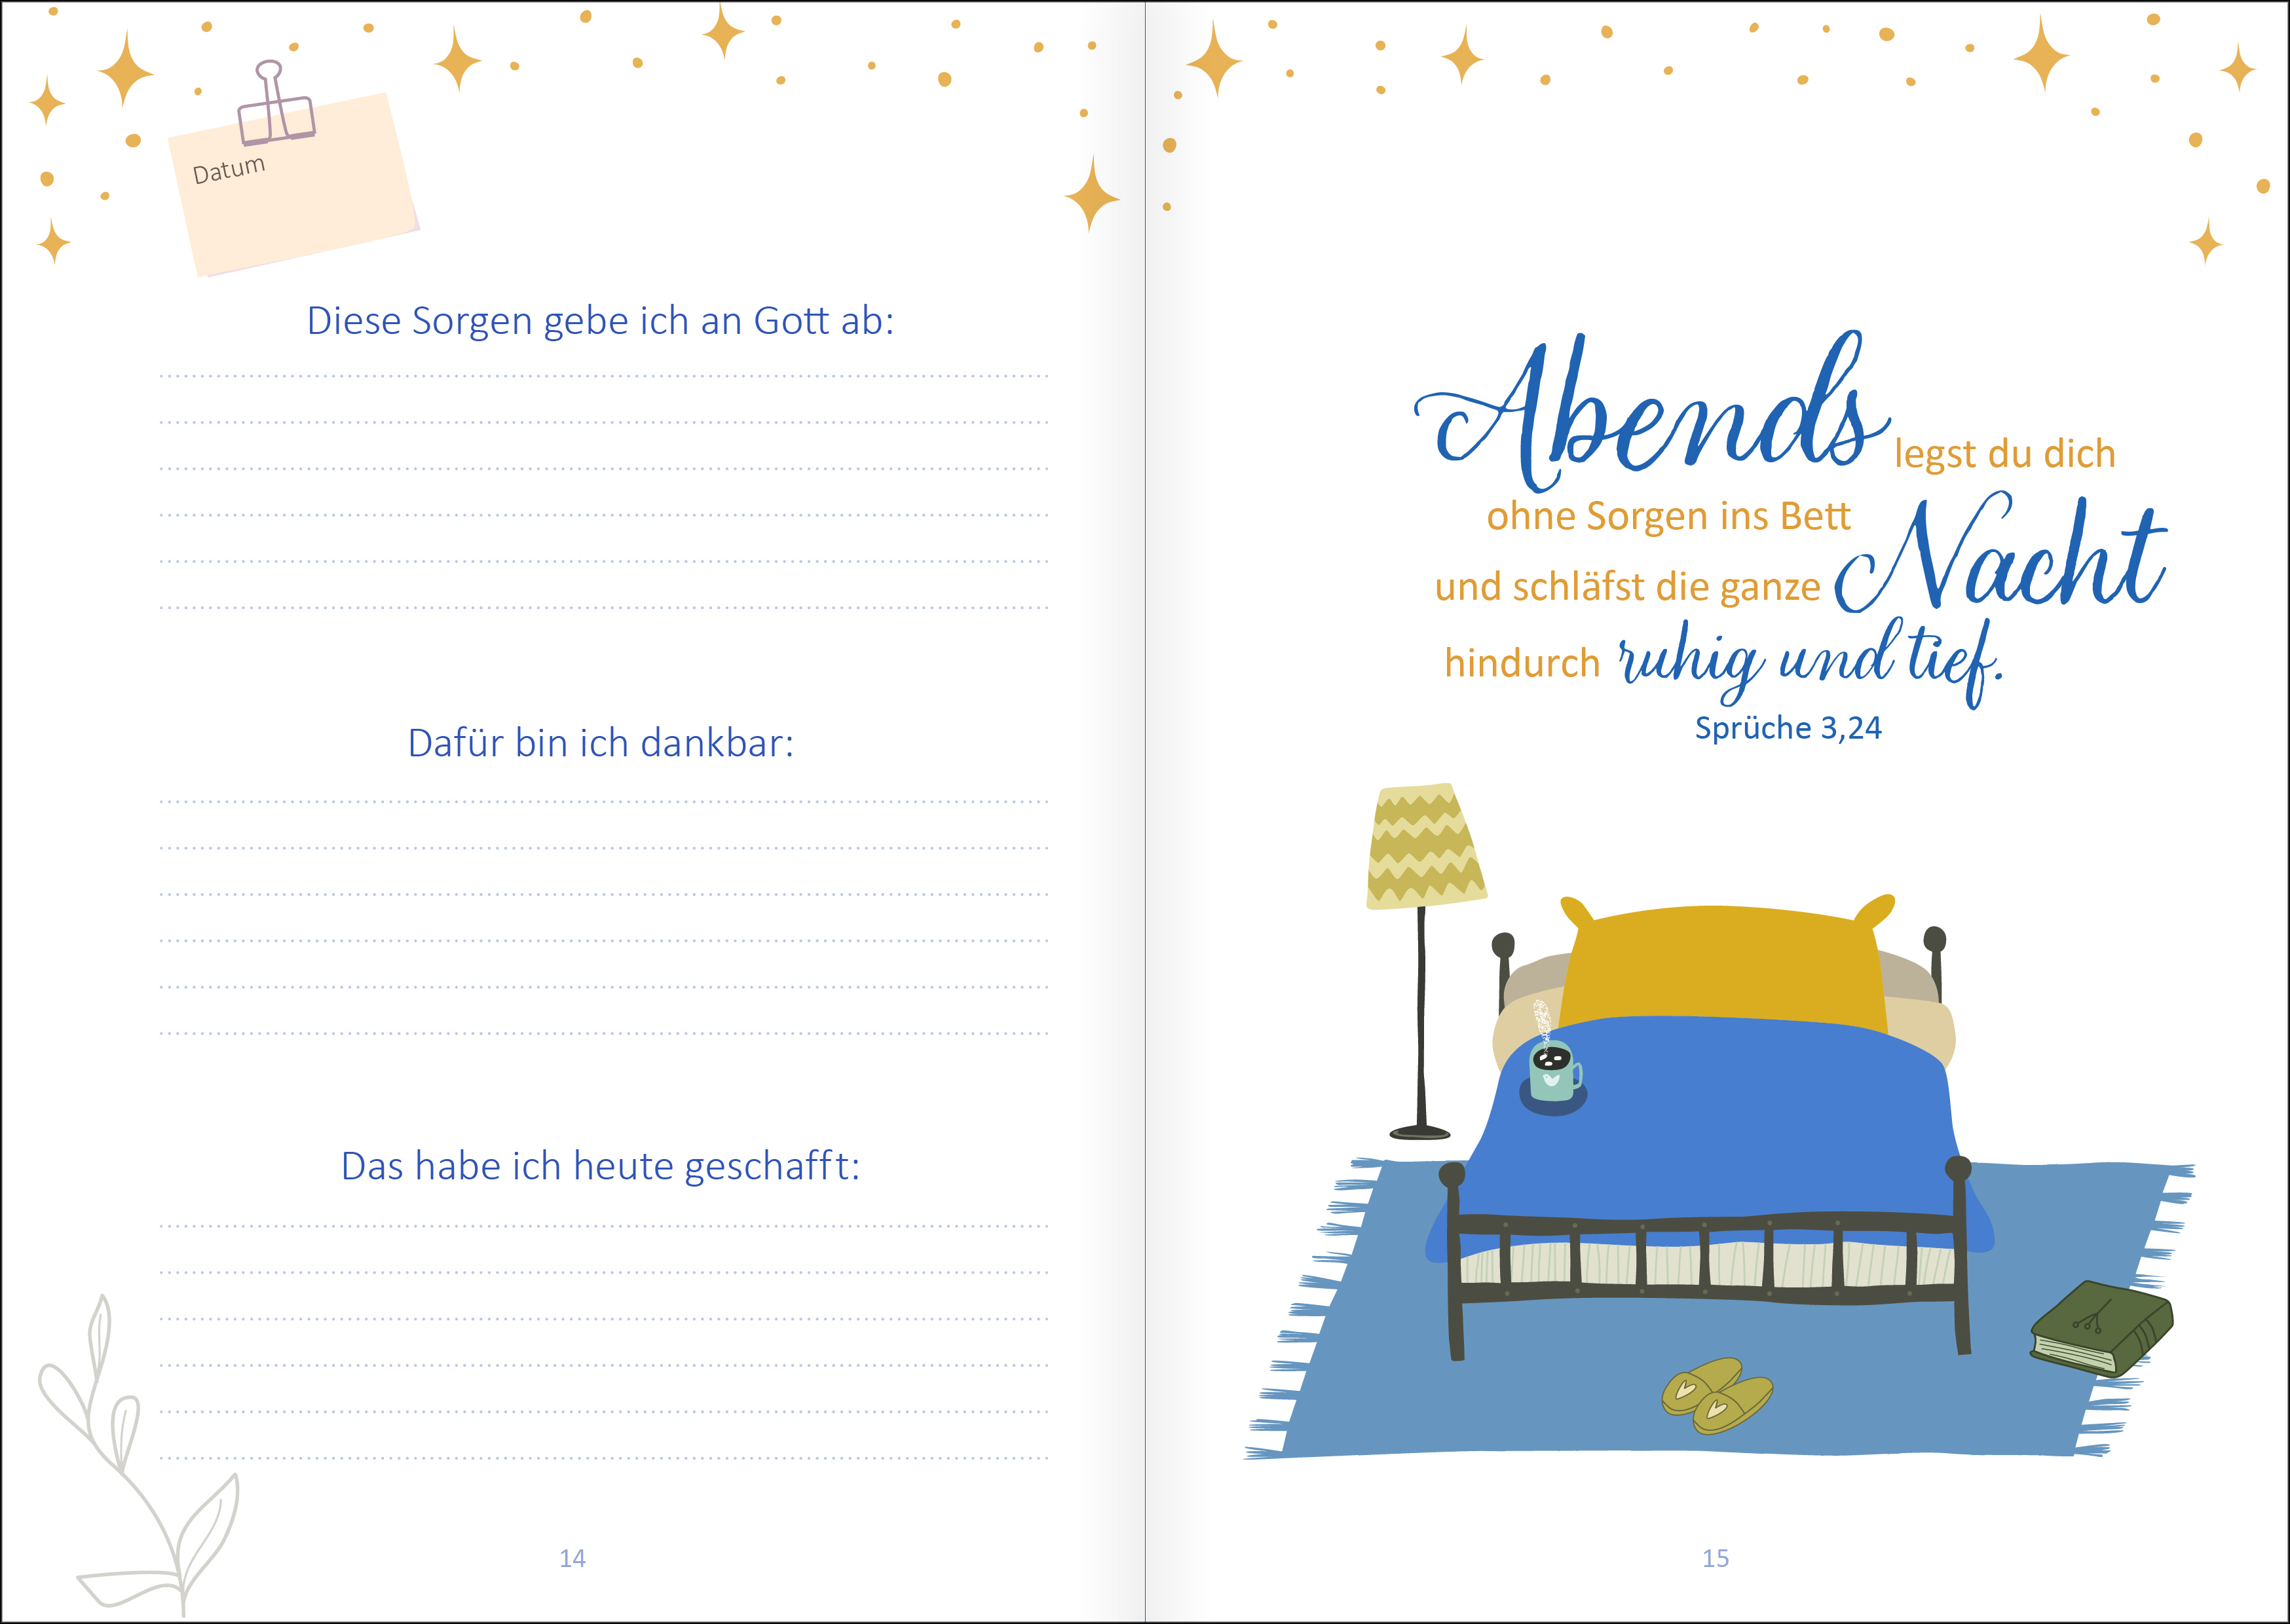 Datum
Diese Sorgen gebe ich an Gott ab:
Dafür bin ich dankbar:
Das habe ich heute geschafft:
14
Abends legst du dich
ohne Sorgen ins Bett
und schläfst die ganze Nacht
hindurch ruhig und tief.
Sprüche 3,24
15